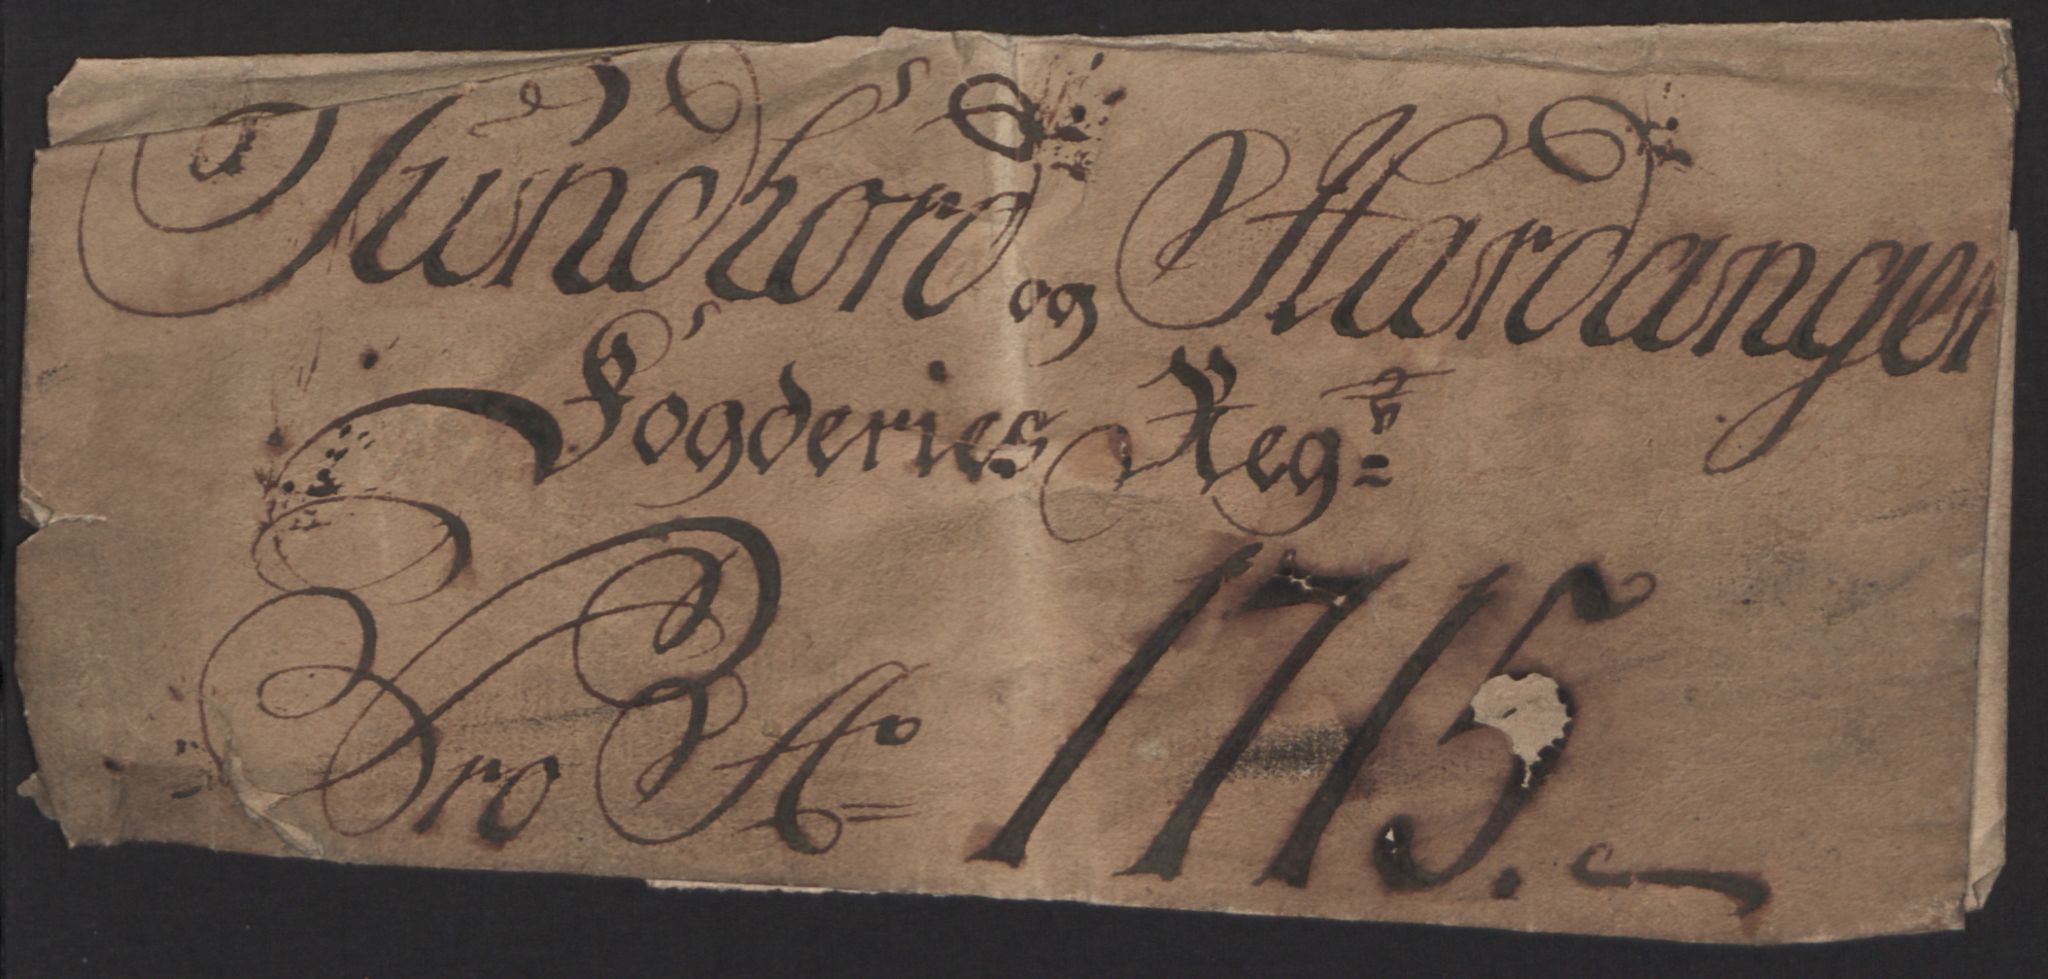 Sundhord og Hardanger
Fogderies Reg:
Pro Ao 1715.